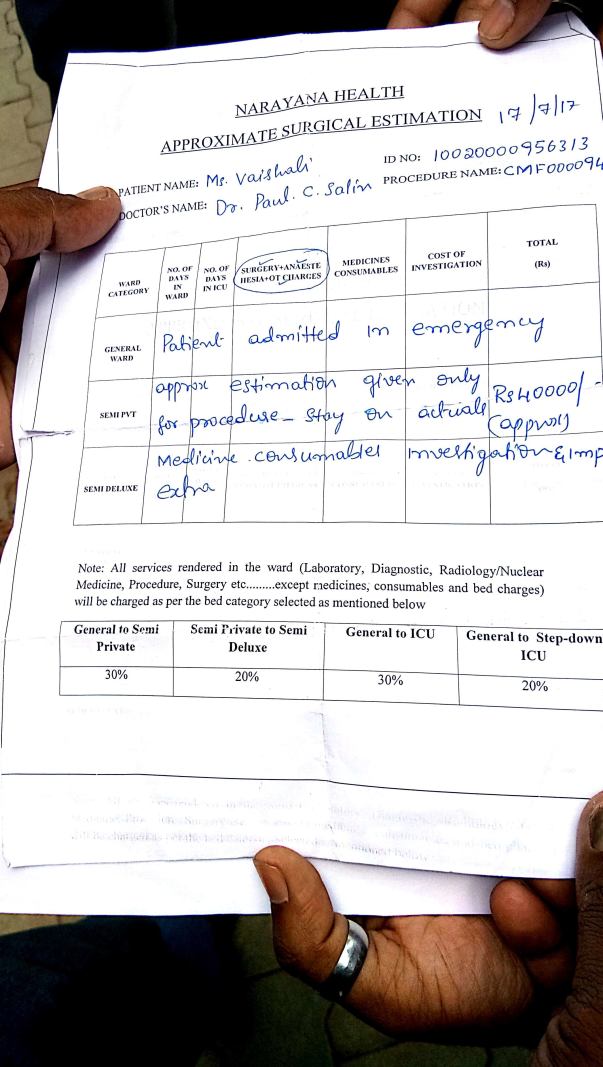 NARAYANA HEALTH
APPROXIMATE SURGICAL ESTIMATION 17/7/17
PATIENT NAME: Ms. Vaishali
ID NO: 10020000956313
DOCTOR'S NAME: Dr. Paul. C. Salin
PROCEDURE NAME: CMF000094
WARD CATEGORY
NO. OF DAYS IN WARD
NO. OF DAYS IN ICU
SURGERY+ANAESTE HESIA+OT CHARGES
MEDICINES CONSUMABLES
COST OF INVESTIGATION
TOTAL (Rs)
GENERAL WARD
Patient admitted in emergency
SEMI PVT
approx estimation given only
for procedure - stay on actuals
Rs 40000/-
(approx)
SEMI DELUXE
Medicine consumables investigation & imp
extra
Note: All services rendered in the ward (Laboratory, Diagnostic, Radiology/Nuclear
Medicine, Procedure, Surgery etc.........except medicines, consumables and bed charges)
will be charged as per the bed category selected as mentioned below
General to Semi Private
Semi Private to Semi Deluxe
General to ICU
General to Step-down ICU
30%
20%
30%
20%